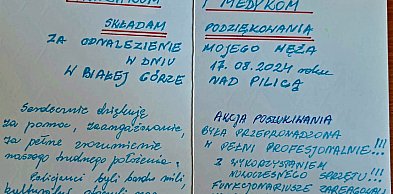 SKŁADAM
ZA ODNALEZIENIE
W DNIU
W BIAŁEJ GÓRZE
Serdecznie dziękuję
za pomoc, zaangażowanie,
za pełne zrozumienie
naszego trudnego położenia.
byli bardzo mili
I MEDYKOM
PODZIĘKOWANIA
MOJEGO MĘŻA
17.08.2024 roku
NAD PILICĄ
AKCJA POSZUKIWANIA
BYŁA PRZEPROWADZONA
W PEŁNI PROFESJONALNIE!!!
Z WYKORZYSTANIEM
NOWOCZESNEGO SPRZĘTU!!!
FUNKCJONARIUSZE ZAREAGOWALI